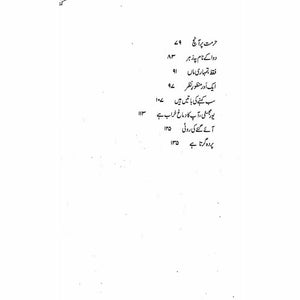 حرمت پر آنچ ۷۹
دوا کے نام پہ زہر ۸۳
فقط تمہاری ماں ۹۱
ایک اور منظورِ نظر ۹۷
سب کہنے کی باتیں ہیں ۱۰۷
آپ کا دماغ خراب ہے ۱۱۳
آئے گئے کی روٹی ۱۲۵
پردہ گرتا ہے ۱۳۵